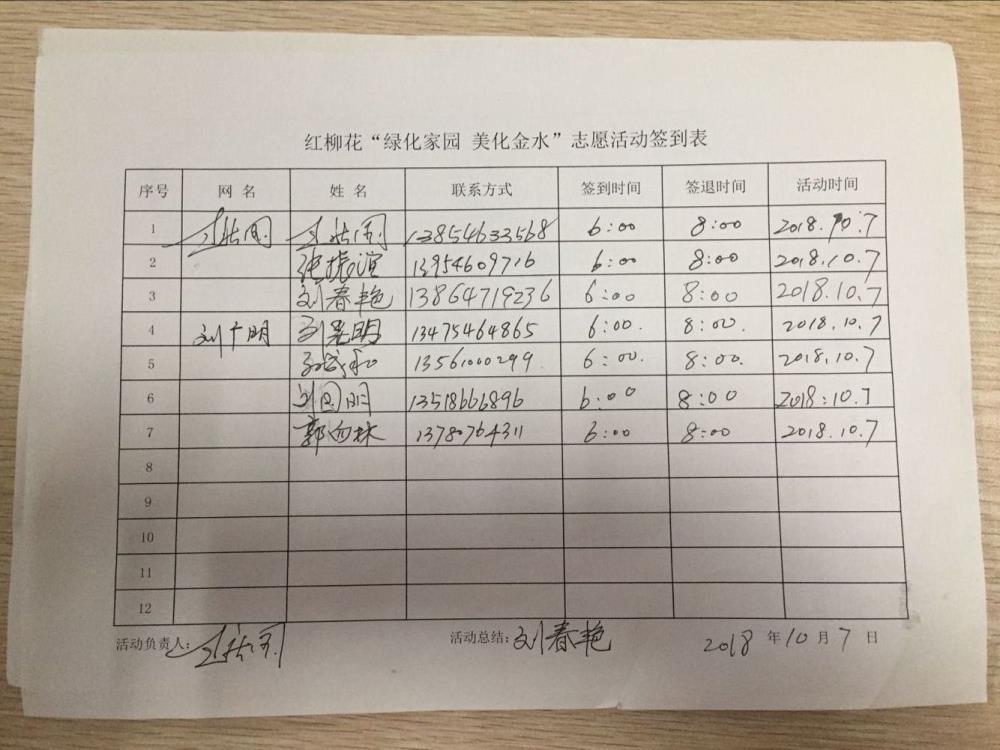 红柳花“绿化家园 美化金水”志愿活动签到表
序号 网 名 姓 名 联系方式 签到时间 签退时间 活动时间
1 13854633568 6:00 8:00 2018.10.7
2 张振谊 13954609716 6:00 8:00 2018.10.7
3 刘春艳 13864719236 6:00 8:00 2018.10.7
4 刘广明 刘光明 13475464865 6:00. 8:00. 2018.10.7
5 13561000299. 6:00. 8:00. 2018.10.7
6 刘国明 13518666896 6:00 8:00 2018:10.7
7 郭向林 13780764311 6:00 8:00 2018.10.7
8
9
10
11
12
活动负责人: 活动总结: 刘春艳 2018 年 10 月 7 日